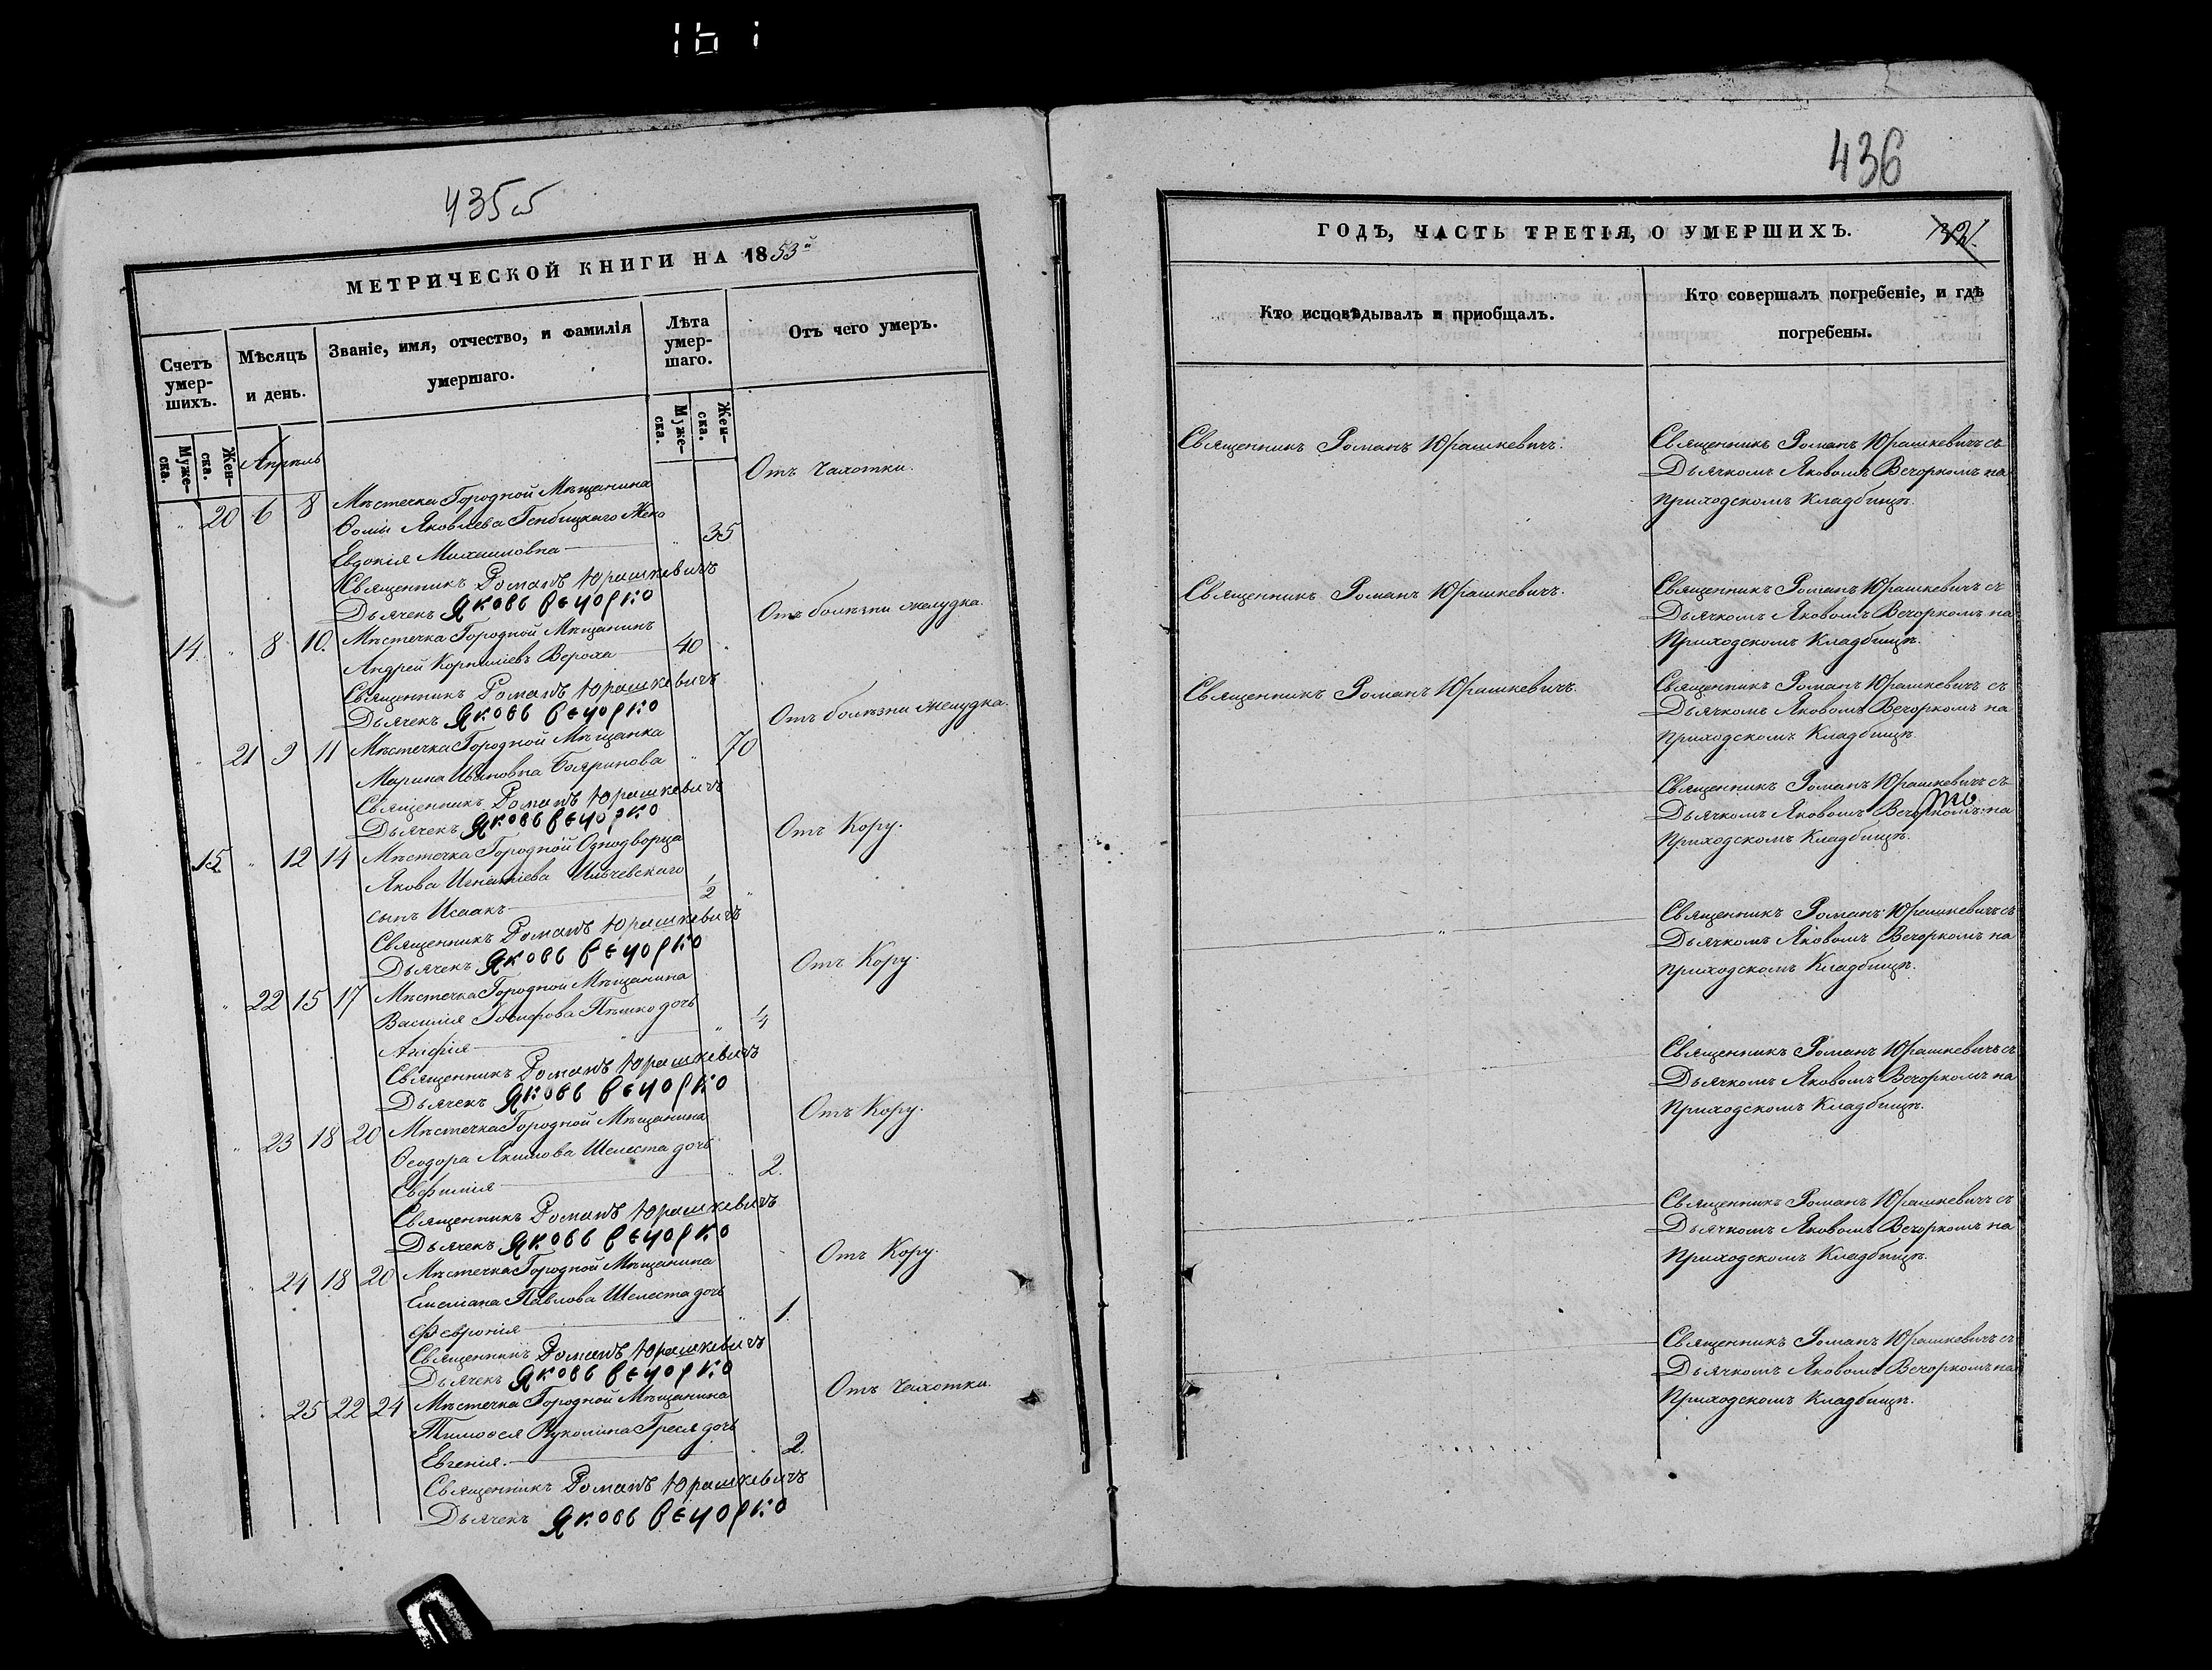 161
435об
МЕТРИЧЕСКОЙ КНИГИ НА 1853й
Счетъ умер-шихъ.
Мѣсяцъ и день.
Званіе, имя, отчество, и фамилія умершаго.
Лѣта умер-шаго.
Отъ чего умеръ.
Муже-ска.
Жен-ска.
Муже-ска.
Жен-ска.
Апрѣль
" 20 6 8 Мѣстечка Городной Мѣщанина Отъ Чахотки.
Ѳомы Яковлева жена
Евдокія Михаиловна " 35
Священникъ Романъ Юрашкевичъ
Дьячекъ Яковъ Вечорко
14. " 8 10. Мѣстечка Городной Мѣщанинъ Отъ болѣзни желудка.
Андрей Корниліевъ Вероха 40 "
Священникъ Романъ Юрашкевичъ
Дьячекъ Яковъ Вечорко
" 21 9 11 Мѣстечка Городной Мѣщанка Отъ болѣзни желудка.
Марина Ивановна Бояринова " 70
Священникъ Романъ Юрашкевичъ
Дьячекъ Яковъ Вечорко
15. " 12 14 Мѣстечка Городной Однодворца Отъ Кору.
Якова Игнатіева Ильчевскаго
сынъ Исаакъ 1/2 "
Священникъ Романъ Юрашкевичъ
Дьячекъ Яковъ Вечорко
" 22 15 17 Мѣстечка Городной Мѣщанина Отъ Кору.
Василія Іосифова Пѣшко дочь
" 1/4
Священникъ Романъ Юрашкевичъ
Дьячекъ Яковъ Вечорко
" 23 18 20 Мѣстечка Городной Мѣщанина Отъ Кору.
Ѳеодора Якимова Шелеста дочь
Евфимія " 2.
Священникъ Романъ Юрашкевичъ
Дьячекъ Яковъ Вечорко
" 24 18 20 Мѣстечка Городной Мѣщанина Отъ Кору.
Емеліана Павлова Шелеста дочь
Февронія " 1.
Священникъ Романъ Юрашкевичъ
Дьячекъ Яковъ Вечорко
" 25 22 24 Мѣстечка Городной Мѣщанина Отъ Чахотки.
Тимоѳея дочь
Евгенія. " 2.
Священникъ Романъ Юрашкевичъ
Дьячекъ Яковъ Вечорко
436
ГОДЪ, ЧАСТЬ ТРЕТІЯ, О УМЕРШИХЪ.
Кто исповѣдывалъ и приобщалъ.
Кто совершалъ погребеніе, и гдѣ погребены.
Священникъ Романъ Юрашкевичъ. Священникъ Романъ Юрашкевичъ съ
Дьячкомъ Яковомъ Вечоркомъ на
приходскомъ Кладбищѣ.
Священникъ Романъ Юрашкевичъ. Священникъ Романъ Юрашкевичъ съ
Дьячкомъ Яковомъ Вечоркомъ на
Приходскомъ Кладбищѣ.
Священникъ Романъ Юрашкевичъ. Священникъ Романъ Юрашкевичъ съ
Дьячкомъ Яковомъ Вечоркомъ на
приходскомъ Кладбищѣ.
Священникъ Романъ Юрашкевичъ съ
Дьячкомъ Яковомъ Вечоркомъ на
Приходскомъ Кладбищѣ.
" Священникъ Романъ Юрашкевичъ съ
Дьячкомъ Яковомъ Вечоркомъ на
приходскомъ Кладбищѣ.
Священникъ Романъ Юрашкевичъ съ
Дьячкомъ Яковомъ Вечоркомъ на
Приходскомъ Кладбищѣ.
Священникъ Романъ Юрашкевичъ съ
Дьячкомъ Яковомъ Вечоркомъ на
Приходскомъ Кладбищѣ.
Священникъ Романъ Юрашкевичъ съ
Дьячкомъ Яковомъ Вечоркомъ на
Приходскомъ Кладбищѣ.